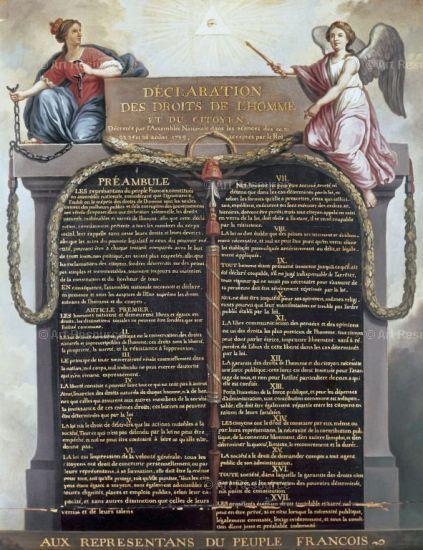 DÉCLARATION
DES DROITS DE L'HOMME
ET DU CITOYEN,
Décrétés par l'Assemblée Nationale dans les séances des 20, 21
23, 24 et 26 août 1789, acceptés par le Roi
PRÉAMBULE
LES représentans du peuple François, constitués
en assemblée nationale, considérant que l'ignorance,
l'oubli ou le mépris des droits de l'homme sont les seules
causes des malheurs publics et de la corruption des gouvernemens
ont résolu d'exposer dans une déclaration solemnelle, les droits
naturels, inaliénables et sacrés de l'homme; afin que cette décla-
ration, constamment présente à tous les membres du corps
social, leur rappelle sans cesse leurs droits et leurs devoirs;
afin que les actes du pouvoir législatif et ceux du pouvoir exé-
cutif, pouvant être à chaque instant comparés avec le but
de toute institution politique, en soient plus respectés; afin que
les réclamations des citoyens, fondées désormais sur des princi-
pes simples et incontestables, tournent toujours au maintien
de la constitution et du bonheur de tous.
EN conséquence, l'assemblée nationale reconnoît et déclare,
en présence et sous les auspices de l'Etre suprême les droits
suivans de l'homme et du citoyen.
ARTICLE PREMIER.
LES hommes naissent et demeurent libres et égaux en
droits; les distinctions sociales ne peuvent être fondées que sur
l'utilité commune.
II.
LE but de toute association politique est la conservation des droits
naturels et imprescriptibles de l'homme; ces droits sont la liberté,
la propriété, la sureté, et la résistance à l'oppression.
III.
LE principe de toute souveraineté réside essentiellement dans
la nation, nul corps, nul individu ne peut exercer d'autorité
qui n'en émane expressément.
IV.
LA liberté consiste à pouvoir faire tout ce qui ne nuit pas à autrui
Ainsi, l'exercice des droits naturels de chaque homme, n'a de bor-
nes que celles qui assurent aux autres membres de la société
la jouissance de ces mêmes droits; ces bornes ne peuvent
être déterminées que par la loi
V.
LA loi n'a le droit de défendre que les actions nuisibles à la
société. Tout ce qui n'est pas défendu par la loi ne peut être
empêché, et nul ne peut être contraint à faire ce qu'elle n'or-
donne pas.
VI.
LA loi est l'expression de la volonté générale; tous les
citoyens ont droit de concourir personnellement, ou par
leurs représentans, à sa formation; elle doit être la même
pour tous, soit qu'elle protège, soit qu'elle punisse. Tous les ci-
toyens étant égaux à ses yeux, sont également admissibles à
toutes dignités, places et emplois publics, selon leur ca-
pacité, et sans autres distinctions que celles de leurs
vertus et de leurs talens
VII.
Nul homme ne peut être accusé, arrêté, ni
détenu que dans les cas déterminés par la loi, et
selon les formes qu'elle a prescrites, ceux qui sollici-
tent, expédient, exécutent ou font exécuter des ordres ar-
bitraires, doivent être punis; mais tout citoyen appelé ou saisi
en vertu de la loi, doit obéir à l'instant, il se rend coupable
par la résistance.
VIII.
LA loi ne doit établir que des peines strictement et évidem-
ment nécessaires, et nul ne peut être puni qu'en vertu d'une
loi établie et promulguée antérieurement au délit, et légale-
ment appliquée.
IX.
TOUT homme étant présumé innocent jusqu'à ce qu'il ait
été déclaré coupable, s'il est jugé indispensable de l'arrêter,
toute rigueur qui ne seroit pas nécessaire pour s'assurer de
sa personne doit être sévèrement réprimée par la loi.
X.
NUL ne doit être inquiété pour ses opinions, mêmes religi-
euses pourvu que leur manifestation ne trouble pas l'ordre
public établi par la loi.
XI.
LA libre communication des pensées et des opinions
est un des droits les plus précieux de l'homme; tout citoyen
peut donc parler, écrire, imprimer librement, sauf à ré-
pondre de l'abus de cette liberté dans les cas déterminés
par la loi.
XII.
LA garantie des droits de l'homme et du citoyen nécessite
une force publique; cette force est donc instituée pour l'avan-
tage de tous, et non pour l'utilité particulière de ceux à qui
elle est confiée.
XIII.
Pour l'entretien de la force publique, et pour les dépenses
d'administration, une contribution commune est indispen-
sable; elle doit être également répartie entre les citoyens en
raison de leurs facultés.
XIV.
LES citoyens ont le droit de constater par eux même ou
par leurs représentans, la nécessité de la contribution pub-
lique, de la consentir librement, d'en suivre l'emploi, et d'en
déterminer la quotité, l'assiette, le recouvrement et la durée.
XV.
LA société a le droit de demander compte à tout agent
public de son administration.
XVI.
TOUTE société, dans laquelle la garantie des droits n'est
pas assurée, ni la séparation des pouvoirs déterminée,
n'a point de constitution
XVII.
LES propriétés étant un droit inviolable et sacré, nul ne
peut en être privé, si ce n'est lorsque la nécessité publique,
légalement constatée, l'exige évidemment, et sous la condi-
tion d'une juste et préalable indemnité.
AUX REPRESENTANS DU PEUPLE FRANCOIS